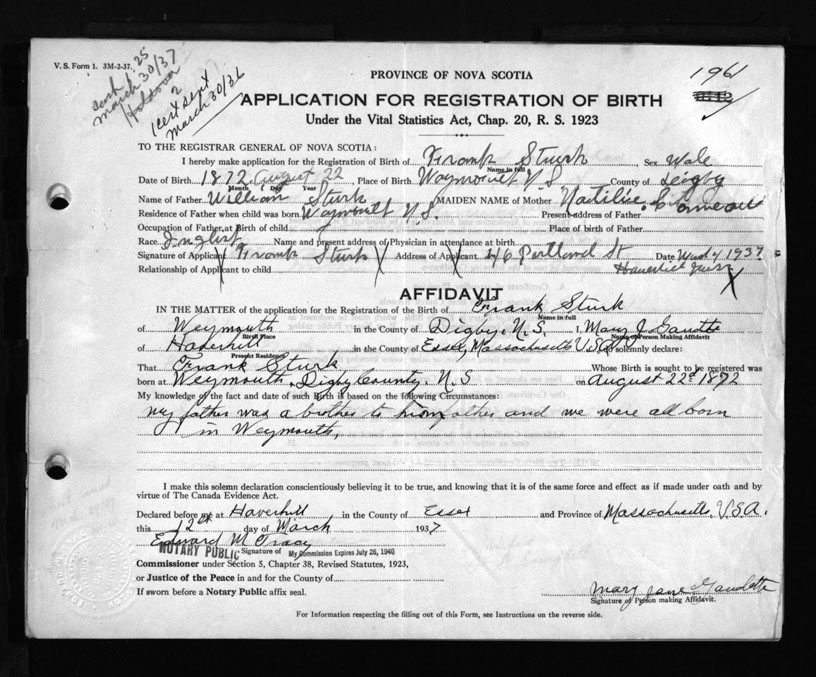 V. S. Form 1. 3M-2-37.
March 30/37
1 cert sent
March 30/36
PROVINCE OF NOVA SCOTIA
1961
APPLICATION FOR REGISTRATION OF BIRTH
Under the Vital Statistics Act, Chap. 20, R. S. 1923
TO THE REGISTRAR GENERAL OF NOVA SCOTIA:
I hereby make application for the Registration of Birth of Frank Sturk Sex Male
Name in full
Date of Birth 1872 August 22 Place of Birth Waymouth N S County of
Month Day Year
Name of Father William Sturk MAIDEN NAME of Mother Comeau
Residence of Father when child was born Waymoult N. S. Present Address of Father
Occupation of Father, at Birth of child Place of birth of Father
Race Name and present address of Physician in attendance at birth
Signature of Applicant Frank Sturk Address of Applicant 46 Portland St Date 1937
Relationship of Applicant to child
AFFIDAVIT
IN THE MATTER of the application for the Registration of the Birth of Frank Sturk
Name in full
of Weymouth in the County of Digby, N. S. I, Mary J. Gaudette
Birth Place Name of Person Making Affidavit
of Haverhill in the County of Essex, Massachusetts U.S.A. do solemnly declare:
Present Residence
That Frank Sturk Whose Birth is sought to be registered was
born at Weymouth, Digby County, N. S on August 22d 1872
My knowledge of the fact and date of such Birth is based on the following Circumstances:
My father was a brother to his mother and we were all born
in Weymouth,
I make this solemn declaration conscientiously believing it to be true, and knowing that it is of the same force and effect as if made under oath and by
virtue of The Canada Evidence Act.
Declared before me at Haverhill in the County of Essex and Province of Massachusetts, U.S.A.
this 12th day of March 1937
Edward M Tracy
NOTARY PUBLIC Signature of My Commission Expires July 26, 1940
Commissioner under Section 5, Chapter 38, Revised Statutes, 1923,
or Justice of the Peace in and for the County of
If sworn before a Notary Public affix seal.
Mary Jane Gaudette
Signature of Person making Affidavit.
For Information respecting the filling out of this Form, see Instructions on the reverse side.